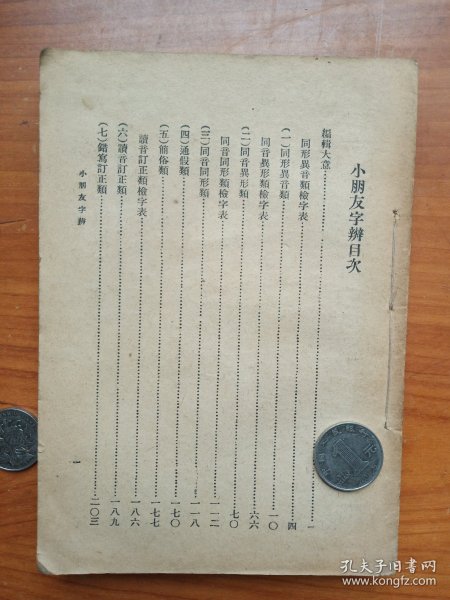 小朋友字辨目次
編輯大意…………一
同形異音類檢字表…………四
(一)同形異音類…………一〇
同音異形類檢字表…………六六
(二)同音異形類…………七〇
同音同形類檢字表…………一一二
(三)同音同形類…………一一八
(四)通假類…………一七〇
(五)簡俗類…………一七七
讀音訂正類檢字表…………一八六
(六)讀音訂正類…………一八九
(七)錯寫訂正類…………二〇三
小朋友字辨
一
孔夫子旧书网
www.kongfz.com